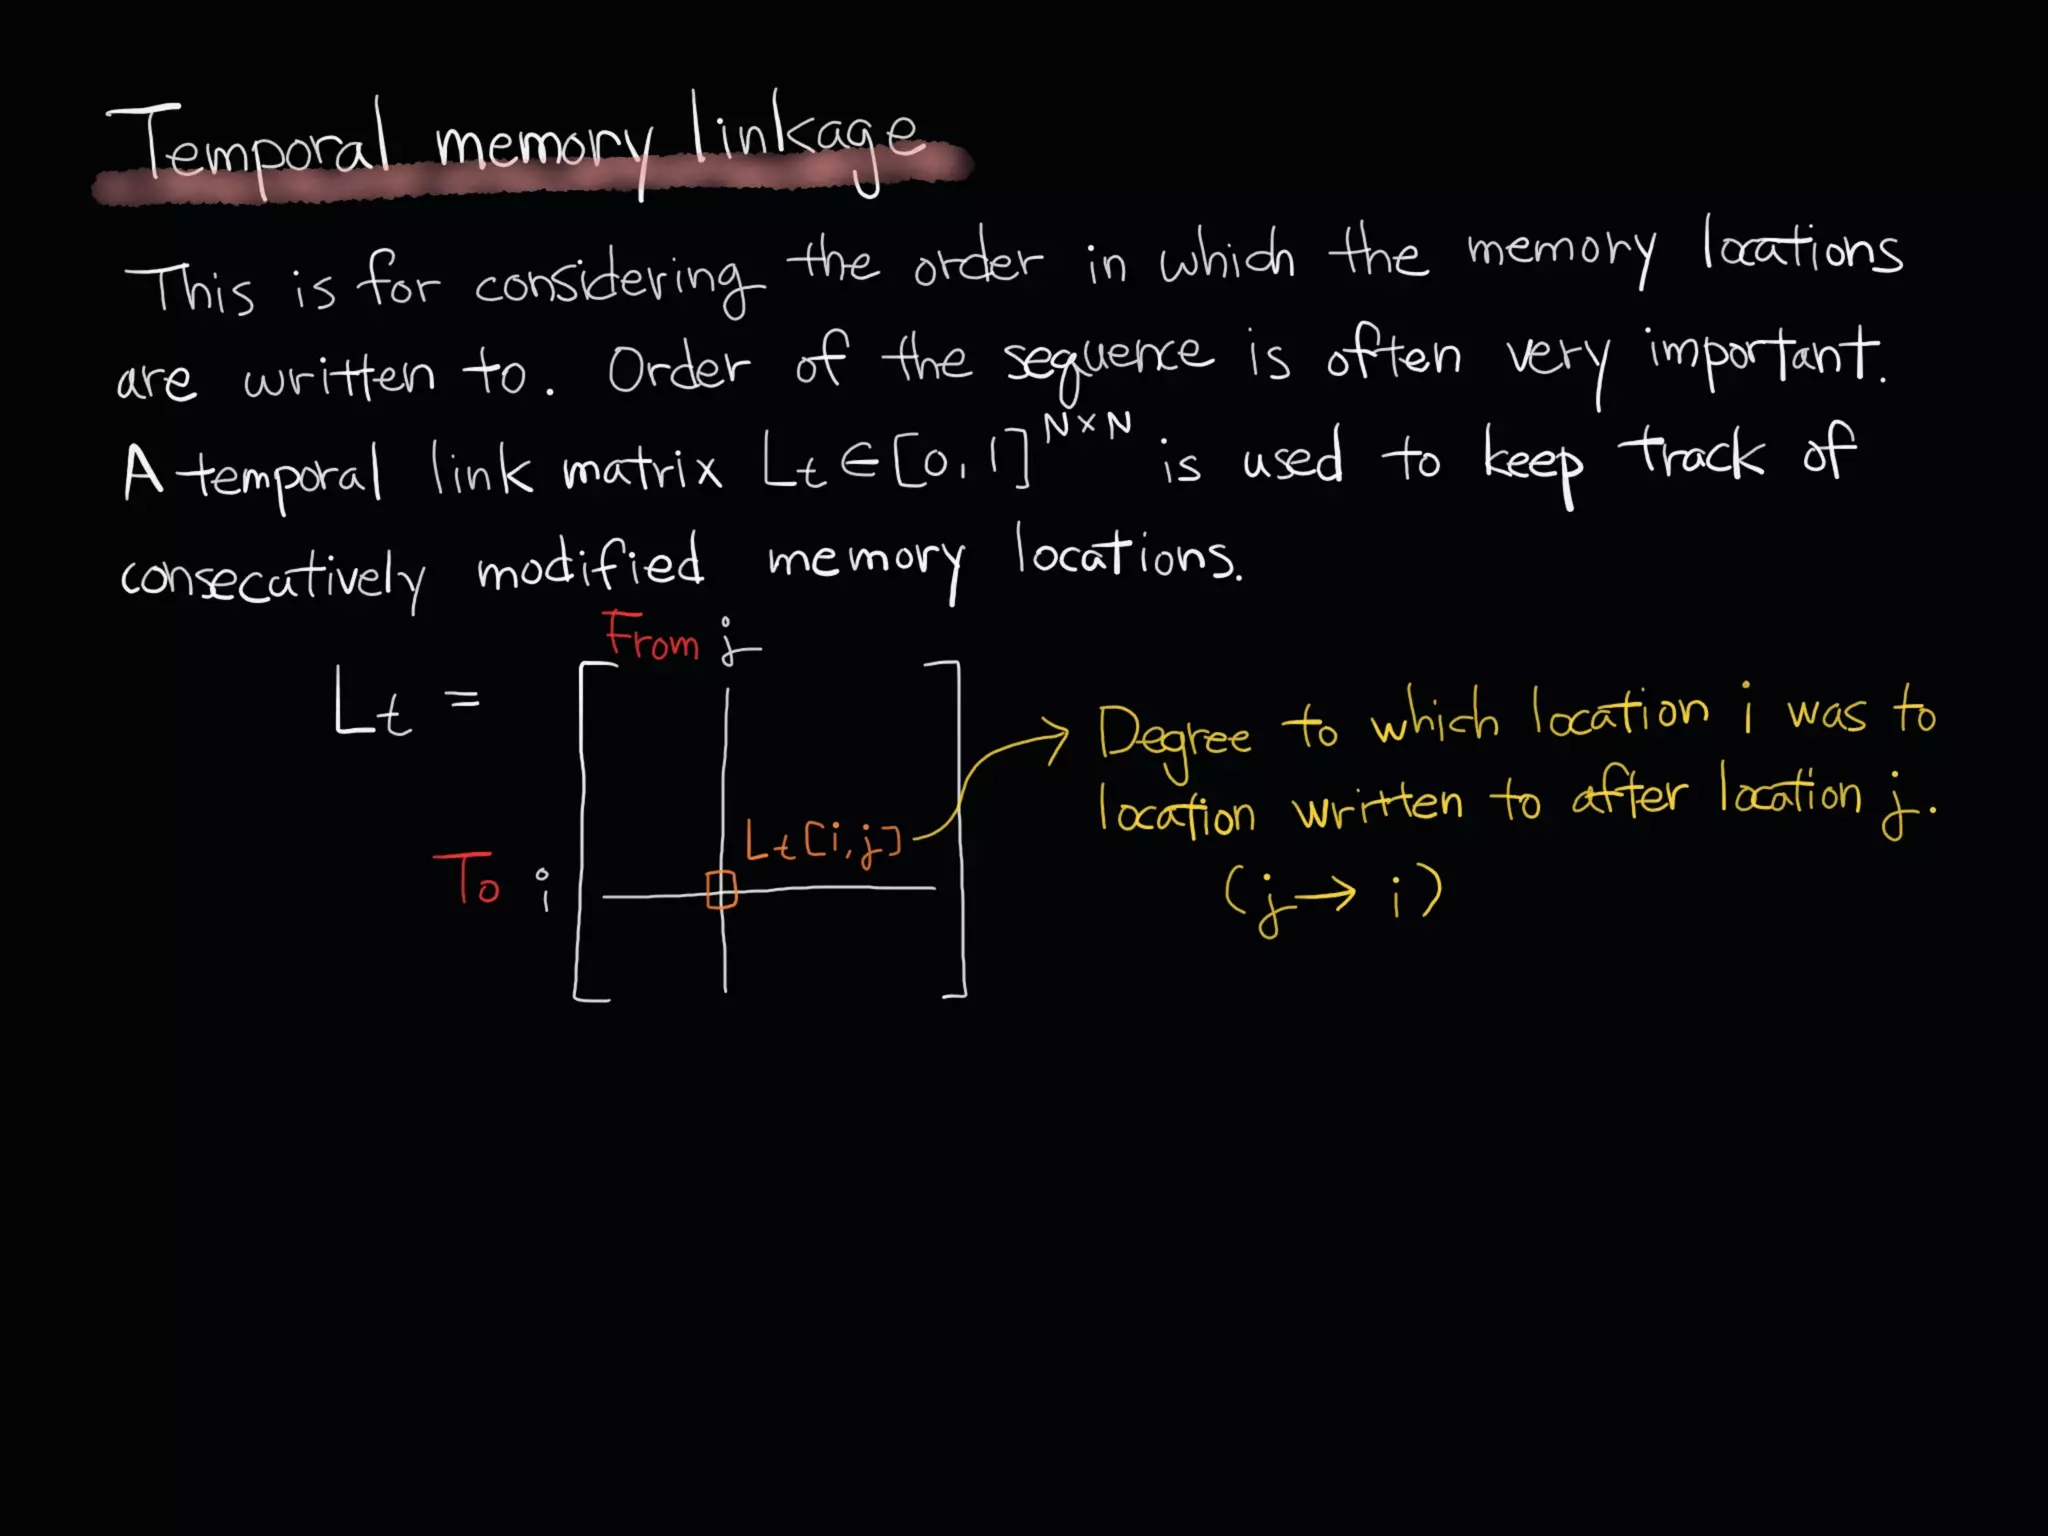 Temporal memory linkage
This is for considering the order in which the memory locations
are written to. Order of the sequence is often very important.
A temporal link matrix Lt ∈ [0, 1]^N×N is used to keep track of
consecutively modified memory locations.
From j
Lt =
Degree to which location i was to
location written to after location j.
Lt[i,j]
To i
(j → i)